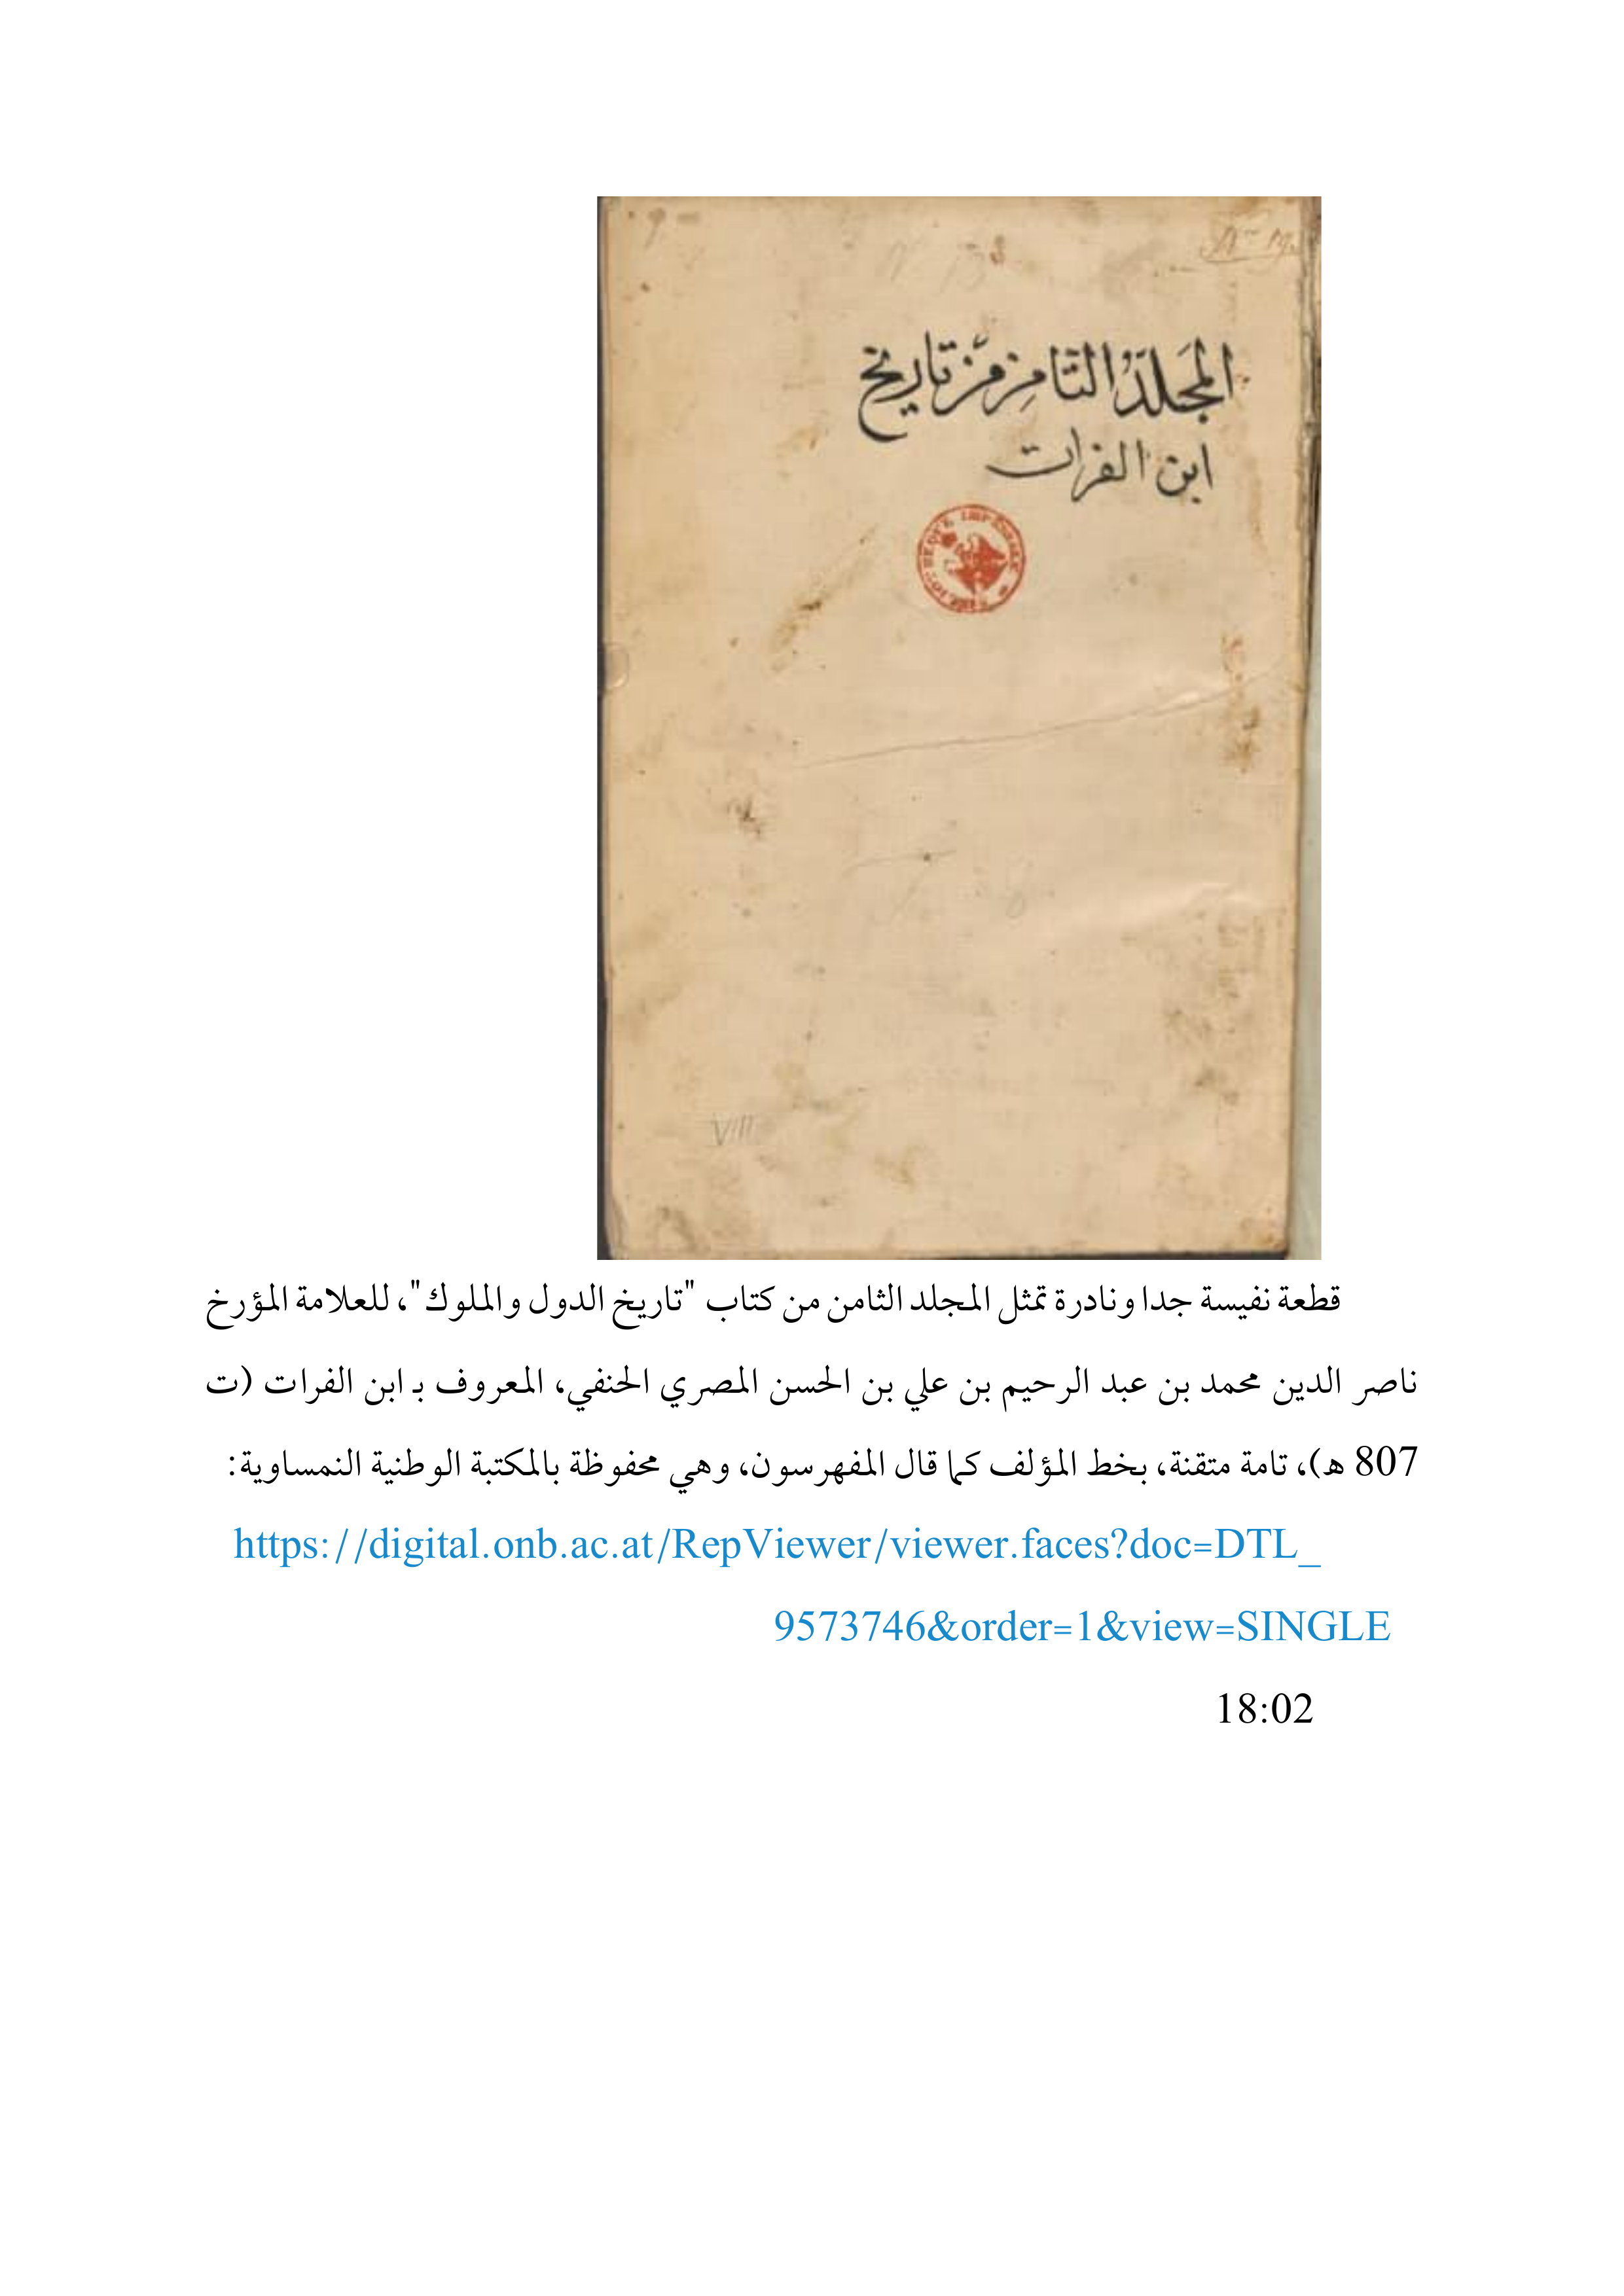 المجلد الثامن من تاريخ
ابن الفرات
VIII
قطعة نفيسة جدا ونادرة تمثل المجلد الثامن من كتاب "تاريخ الدول والملوك"، للعلامة المؤرخ
ناصر الدين محمد بن عبد الرحيم بن علي بن الحسن المصري الحنفي، المعروف بـ ابن الفرات (ت
807 هـ)، تامة متقنة، بخط المؤلف كما قال المفهرسون، وهي محفوظة بالمكتبة الوطنية النمساوية:
https://digital.onb.ac.at/RepViewer/viewer.faces?doc=DTL_
9573746&order=1&view=SINGLE
18:02